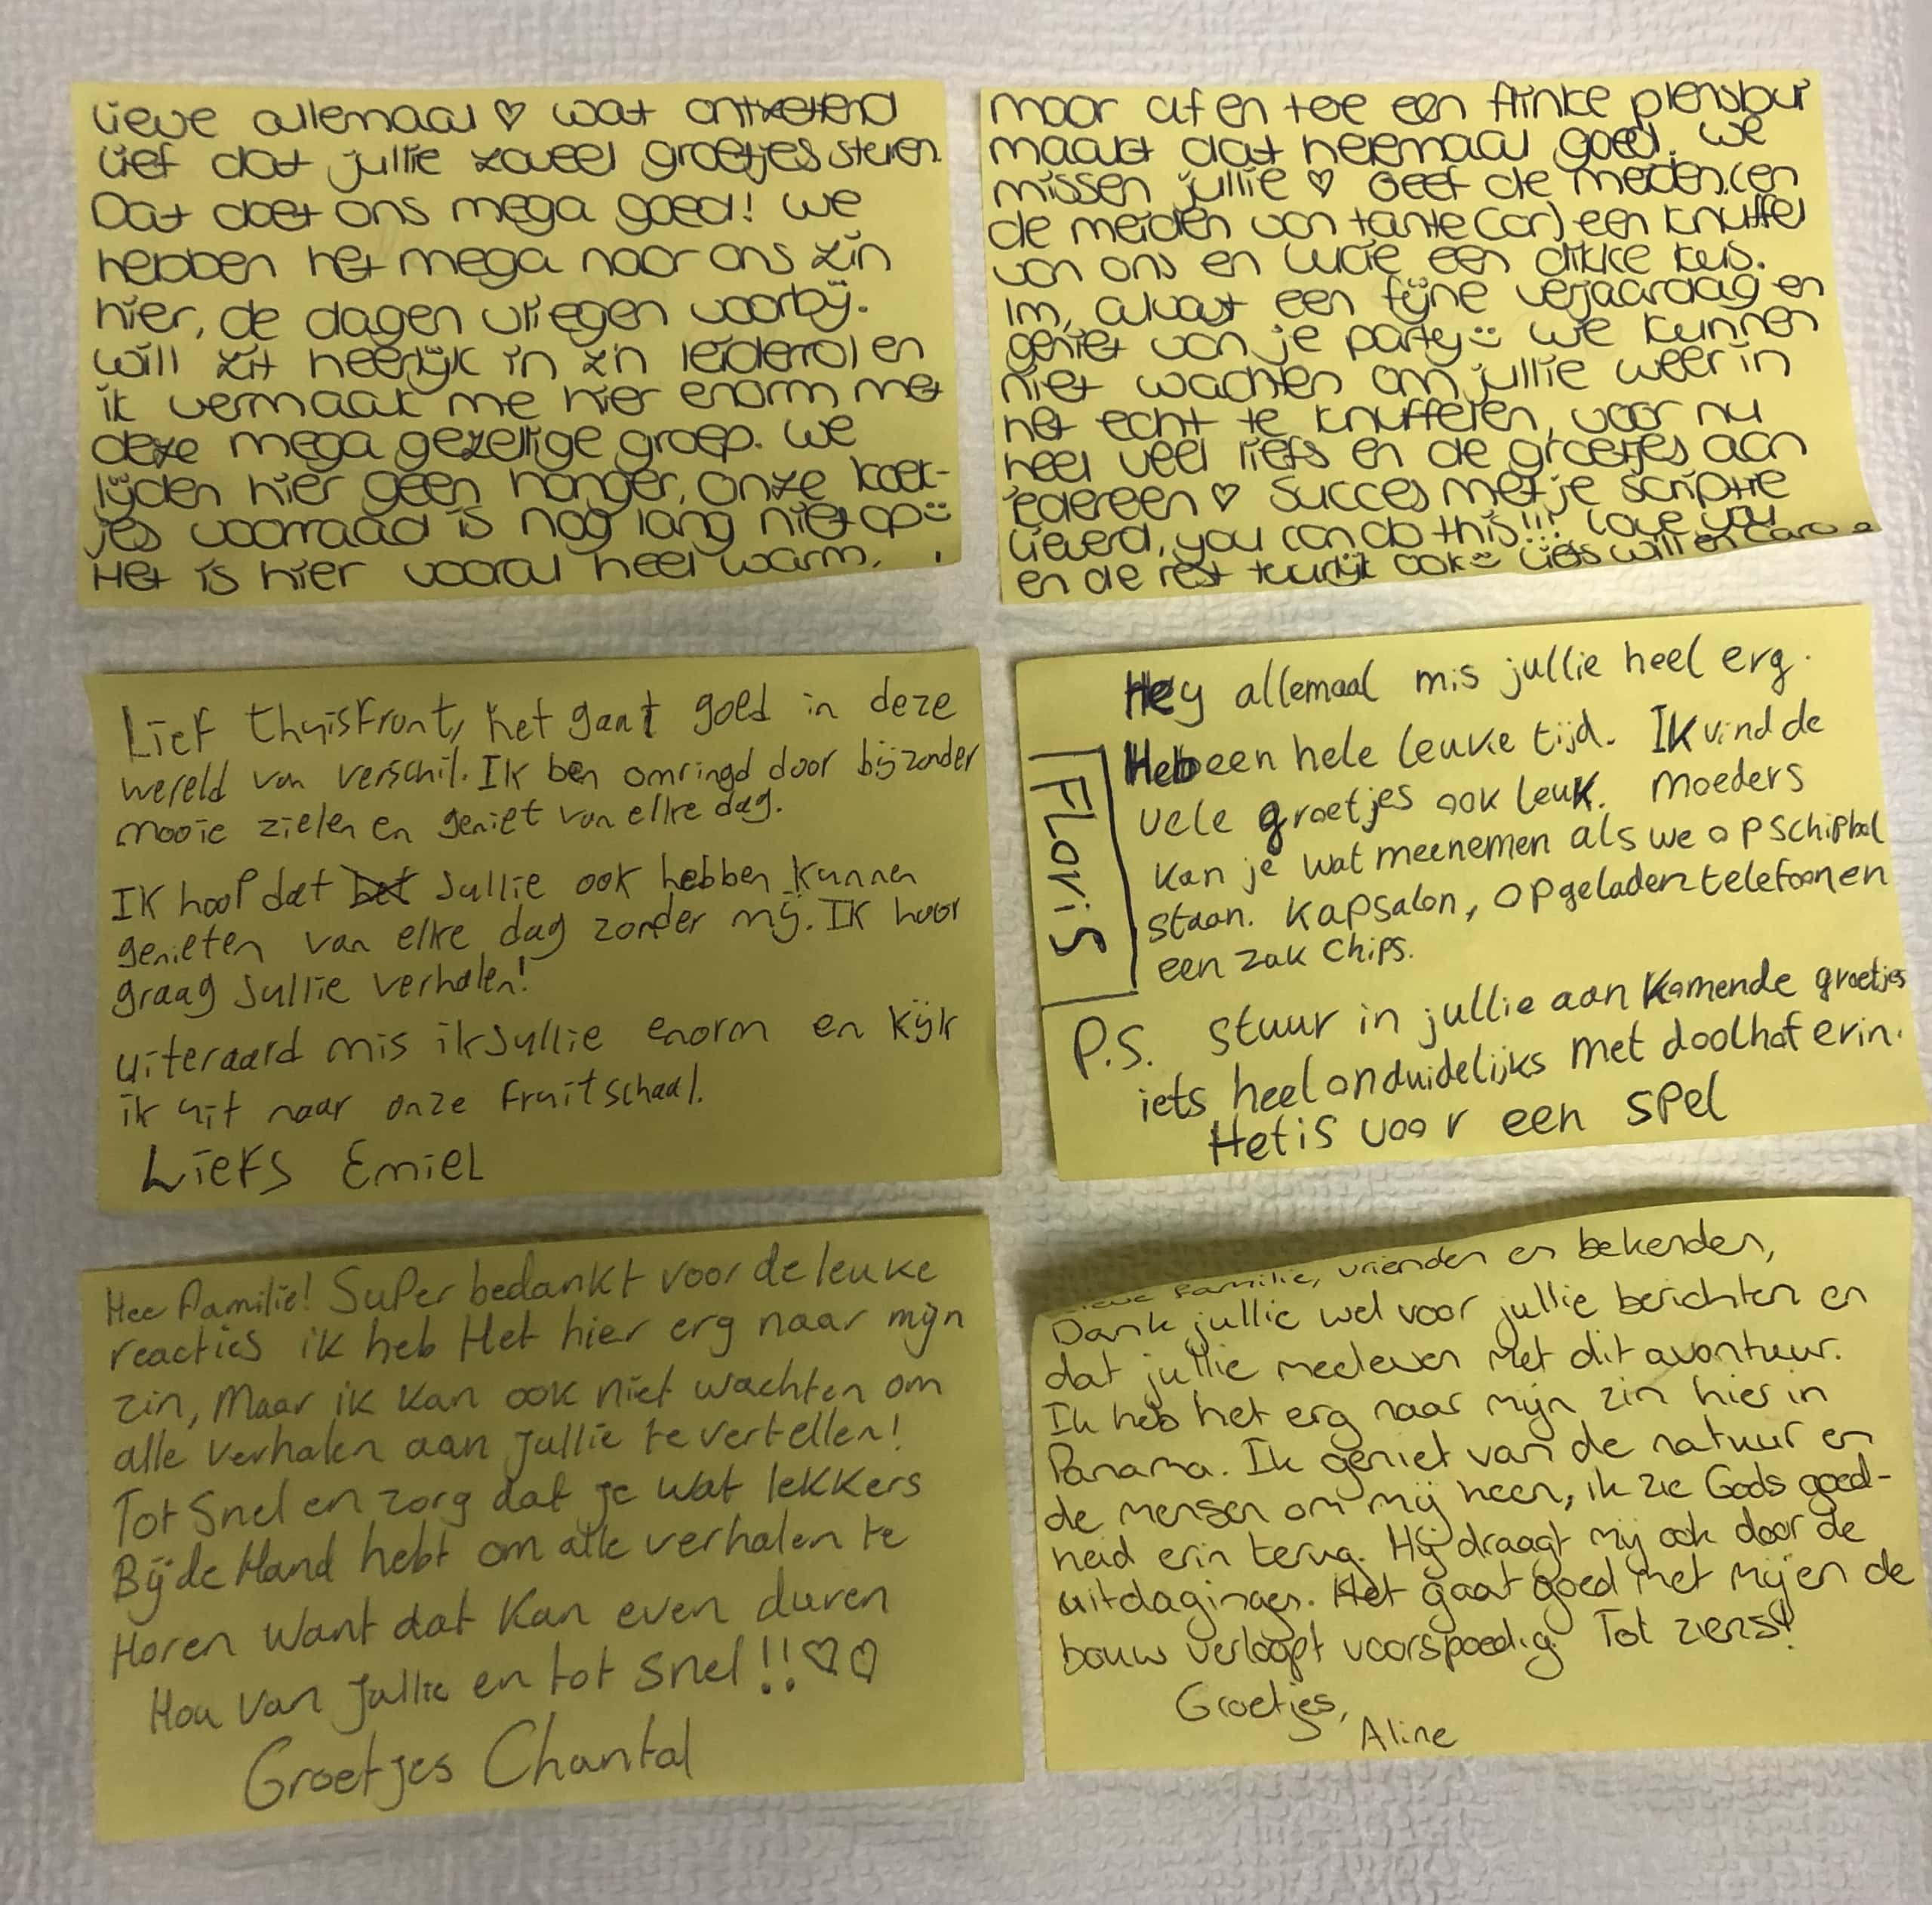 Lieve allemaal ♡ wat ontzettend
lief dat jullie zoveel groetjes sturen.
Dat doet ons mega goed! We
hebben het mega naar ons zin
hier, de dagen vliegen voorbij.
Will zit heerlijk in z'n leiderrol en
ik vermaak me hier enorm met
deze mega gezellige groep. We
lijden hier geen honger, onze koek-
jes voorraad is nog lang niet op☺
Het is hier vooral heel warm,
maar af en toe een flinke plensbui
maakt dat helemaal goed. We
missen jullie ♡ Geef de meiden (en
de meiden van tante Cor) een knuffel
van ons en Lucie een dikke kus.
Im, alvast een fijne verjaardag en
geniet van je party☺ We kunnen
niet wachten om jullie weer in
het echt te knuffelen, voor nu
heel veel liefs en de groetjes aan
iedereen ♡ Succes met je scriptie
lieverd, you can do this!!! Love you
en de rest tuurlijk ook☺ Liefs Will en
Lief thuisfront, het gaat goed in deze
wereld van verschil. Ik ben omringd door bijzonder
mooie zielen en geniet van elke dag.
Ik hoop dat het jullie ook hebben kunnen
genieten van elke dag zonder mij. Ik hoor
graag jullie verhalen!
Uiteraard mis ik jullie enorm en kijk
ik uit naar onze fruitschaal.
Liefs Emiel
Floris
Hey allemaal mis jullie heel erg.
Heb een hele leuke tijd. Ik vind de
vele groetjes ook leuk. Moeders
kan je wat meenemen als we op schiphol
staan. Kapsalon, opgeladen telefoon en
een zak chips.
P.S. stuur in jullie aan komende groetjes
iets heel onduidelijks met doolhof erin.
Het is voor een spel
Hee familie! Super bedankt voor de leuke
reacties ik heb Het hier erg naar mijn
zin, Maar ik kan ook niet wachten om
alle verhalen aan jullie te vertellen!
Tot Snel en zorg dat je wat lekkers
Bij de Hand hebt om alle verhalen te
Horen Want dat Kan even duren
Hou van jullie en tot snel!!♡♡
Groetjes Chantal
Lieve familie, vrienden en bekenden,
Dank jullie wel voor jullie berichten en
dat jullie meeleven met dit avontuur.
Ik heb het erg naar mijn zin hier in
Panama. Ik geniet van de natuur en
de mensen om mij heen, ik zie Gods goed-
heid erin terug. Hij draagt mij ook door de
uitdagingen. Het gaat goed met mij en de
bouw verloopt voorspoedig. Tot ziens!
Groetjes,
Aline